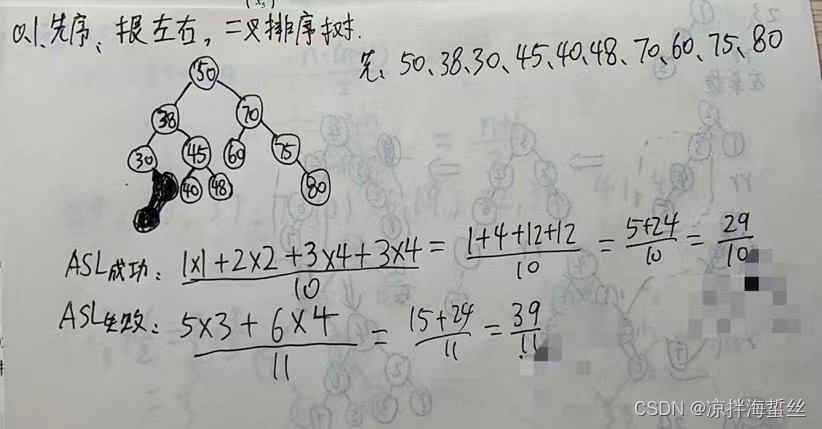 (x₃)
01.先序、根左右，二叉排序树.
先、50、38、30、45、40、48、70、60、75、80
50
38 70
30 45 60 75
40 48 80
ASL成功: 1x1+2x2+3x4+3x4/10 = 1+4+12+12/10 = 5+24/10 = 29/10
ASL失败: 5x3+6x4/11 = 15+24/11 = 39/11
CSDN @凉拌海蜇丝